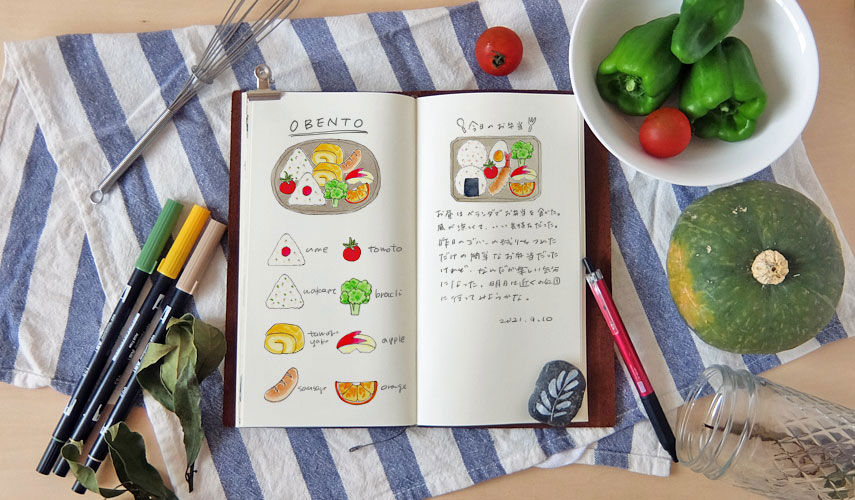 OBENTO
ume
tomato
wakame
brocli
tamago
yaki
apple
sausage
orange
今日のお弁当
お昼はベランダでお弁当を食べた。
風が涼しくて、いい気持ちだった。
昨日のゴハンの
だけの簡単なお弁当だった
けれど、なんだか楽しい気分
になった。明日は近くの公園
に行ってみようかな。
2021. 9.10